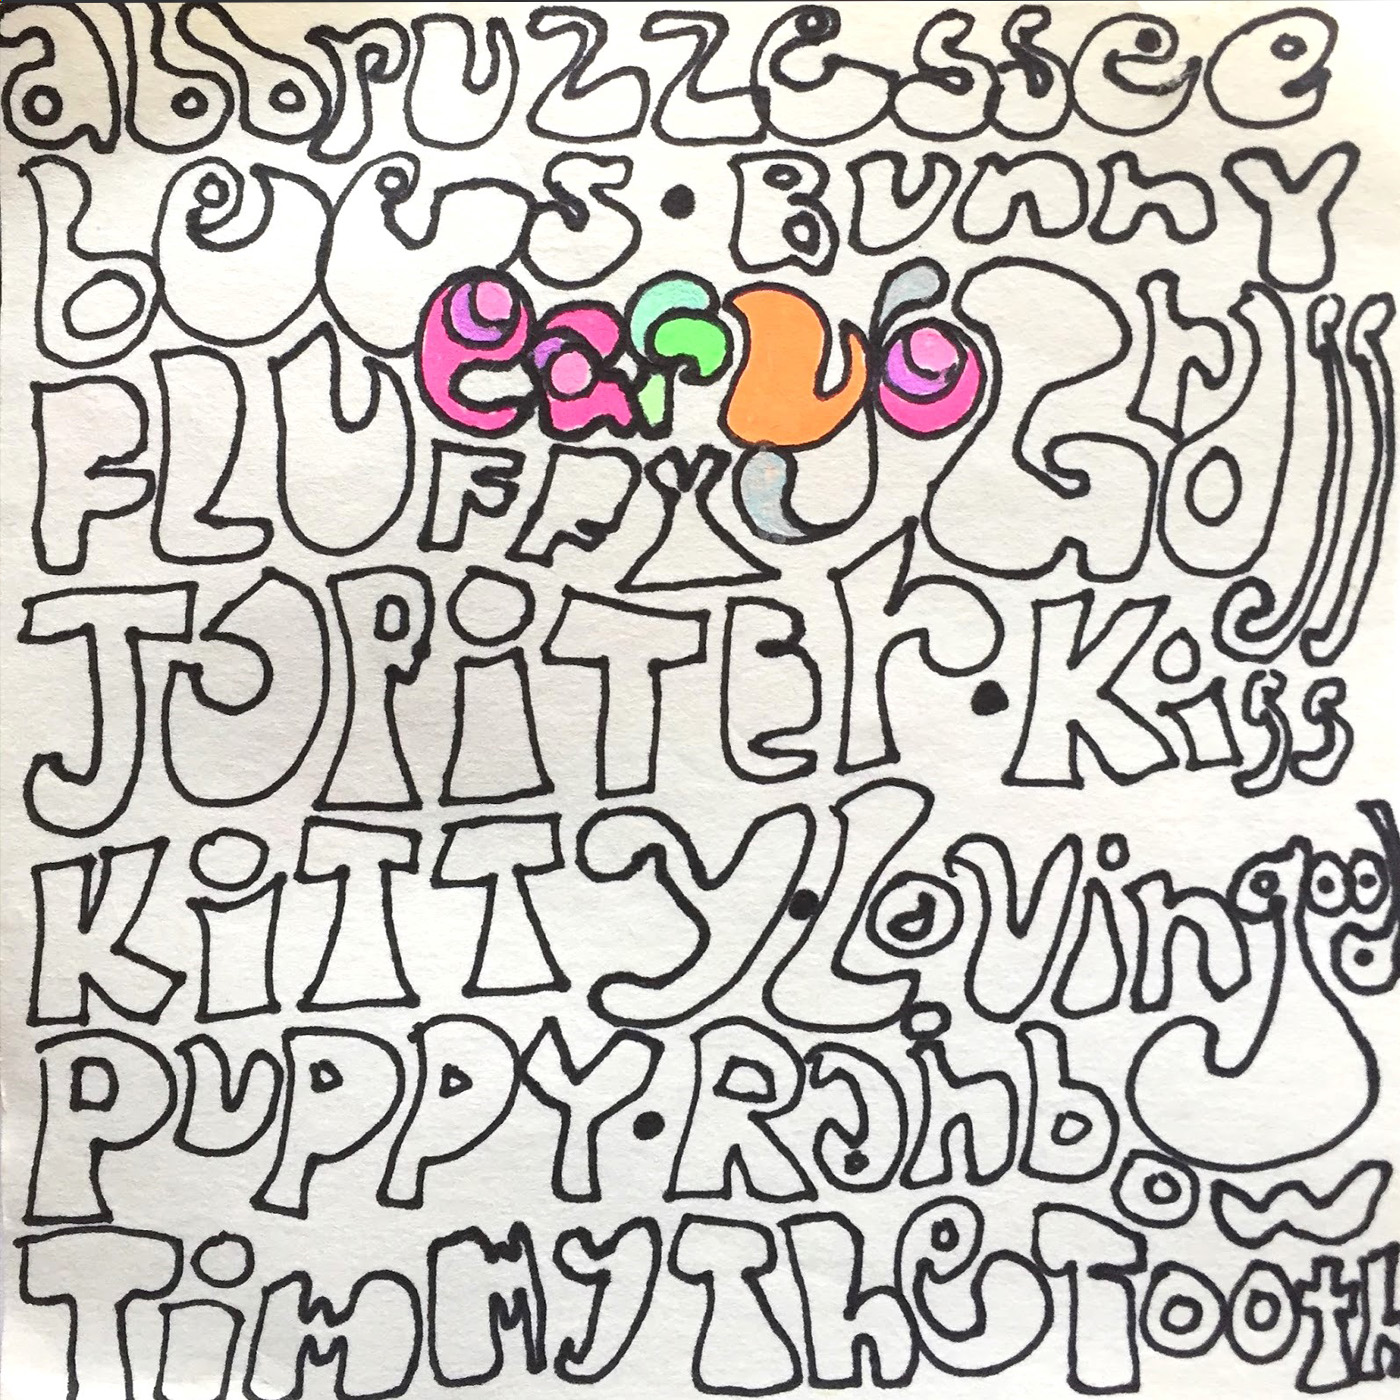 abbpuzzessee
bees • Bunny
earve
FLUFFY
JUPiTEr • Kiss
KiTTy • Loving
PUPPY • Rainbow
TimmyTheTooth